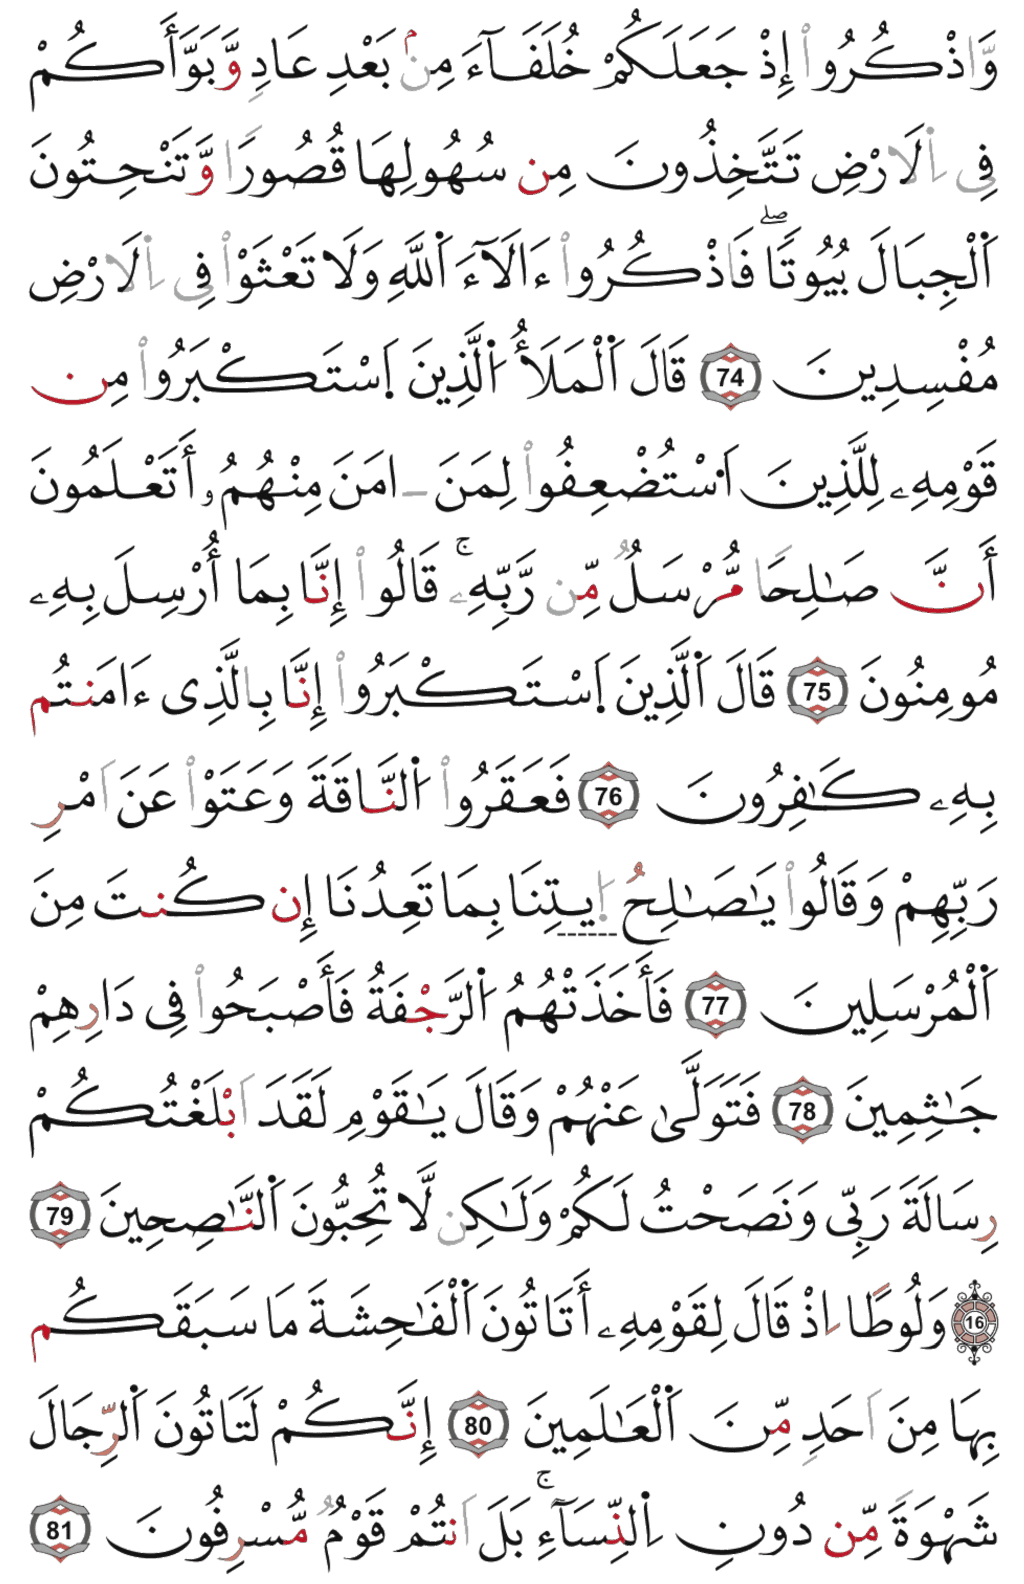 وَّاذْكُرُواْ إِذْ جَعَلَكُمْ خُلَفَآءَ مِنۢ بَعْدِ عَادٍ وَّبَوَّأَكُمْ
فِى اِ۬لَارْضِ تَتَّخِذُونَ مِن سُهُولِهَا قُصُورًا وَّتَنْحِتُونَ
اَ۬لْجِبَالَ بُيُوتًاۖ فَاذْكُرُواْ ءَالَآءَ اَ۬للَّهِ وَلَا تَعْثَوْاْ فِى اِ۬لَارْضِ
مُفْسِدِينَ 74 قَالَ اَ۬لْمَلَأُ اُ۬لَّذِينَ اَ۪سْتَكْبَرُواْ مِن
قَوْمِهِۦ لِلَّذِينَ اَ۟سْتُضْعِفُواْ لِمَنَ ـ امَنَ مِنْهُمُۥ أَتَعْلَمُونَ
أَنَّ صَٰلِحًا مُّرْسَلٌ مِّن رَّبِّهِۦۚ قَالُواْ إِنَّا بِمَا أُرْسِلَ بِهِۦ
مُومِنُونَ 75 قَالَ اَ۬لَّذِينَ اَ۪سْتَكْبَرُواْ إِنَّا بِالَّذِى ءَامَنتُم
بِهِۦ كَٰفِرُونَ 76 فَعَقَرُواْ اُ۬لنَّاقَةَ وَعَتَوْاْ عَنَ اَمْرِ
رَبِّهِمْ وَقَالُواْ يَٰصَٰلِحُ اُ۪يتِنَا بِمَا تَعِدُنَا إِن كُنتَ مِنَ
اَ۬لْمُرْسَلِينَ 77 فَأَخَذَتْهُمُ اُ۬لرَّجْفَةُ فَأَصْبَحُواْ فِى دَارِهِمْ
جَٰثِمِينَ 78 فَتَوَلَّىٰ عَنْهُمْ وَقَالَ يَٰقَوْمِ لَقَدَ اَبْلَغْتُكُمْ
رِسَالَةَ رَبِّى وَنَصَحْتُ لَكُمْ وَلَٰكِن لَّا تُحِبُّونَ اَ۬لنَّٰصِحِينَ 79
16 وَلُوطًا اِذْ قَالَ لِقَوْمِهِۦ أَتَاتُونَ اَ۬لْفَٰحِشَةَ مَا سَبَقَكُم
بِهَا مِنَ اَحَدٍ مِّنَ اَ۬لْعَٰلَمِينَ 80 إِنَّكُمْ لَتَاتُونَ اَ۬لرِّجَالَ
شَهْوَةً مِّن دُونِ اِ۬لنِّسَآءِۚ بَلَ اَنتُمْ قَوْمٌ مُّسْرِفُونَ 81